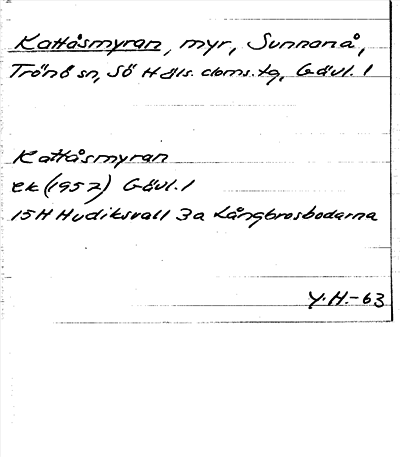 Kattåsmyran, myr, Sunnanå,
Trönö sn, Sö Häls. doms. tg, Gävl. l
Kattåsmyran
ek (1957) Gävl. l
15H Hudiksvall 3a Långbrosbodarna
Y.H.-63